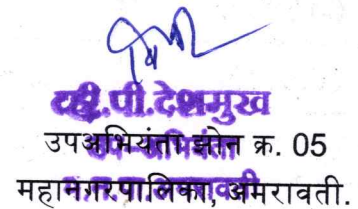 व्ही.पी.देशमुख
उपअभियंता झोन क्र. 05
महानगरपालिका, अमरावती.